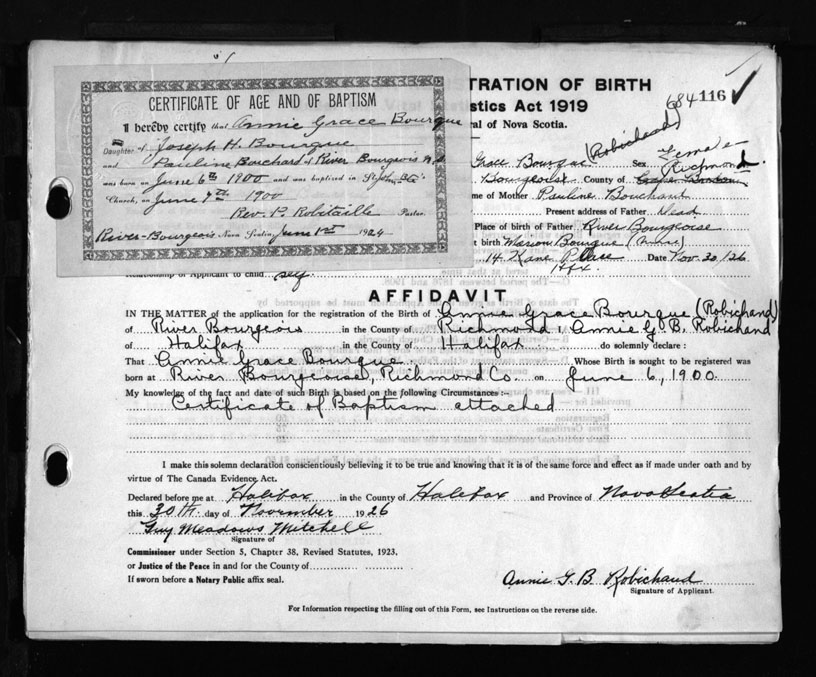 CERTIFICATE OF AGE AND OF BAPTISM
I hereby certify that Annie Grace Bourque
Daughter of Joseph H. Bourque
and Pauline Bouchard of River Bourgeois N.S
was born on June 6th 1900 and was baptized in St John Bte's
Church, on June 9th 1900
Rev. P. Robitaille Pastor.
River-Bourgeois Nova Scotia, June 1st 1924
TRATION OF BIRTH
stics Act 1919
684 116
ral of Nova Scotia.
(Robichead)
Grace Bourque Sex Female
Richmond
Bourgeoist County of
me of Mother Pauline Bouchard
Present address of Father Dead
Place of birth of Father River Bourgeoise
t birth Marion Bourque
14 Kane Place Date Nov. 30, '26
Hfx.
Relationship of Applicant to child self.
AFFIDAVIT
IN THE MATTER of the application for the registration of the Birth of Annie Grace Bourque (Robichaud)
of River Bourgeois in the County of Richmond I Annie G. B. Robichaud
of Halifax in the County of Halifax do solemnly declare :
That Annie Grace Bourque Whose Birth is sought to be registered was
born at River Bourgeoise, Richmond Co. on June 6, 1900.
My knowledge of the fact and date of such Birth is based on the following Circumstances:-
Certificate of Baptism attached
I make this solemn declaration conscientiously believing it to be true and knowing that it is of the same force and effect as if made under oath and by
virtue of The Canada Evidence Act.
Declared before me at Halifax in the County of Halifax and Province of Nova Scotia
this 30th. day of November 1926
Guy Meadows Mitchell
Signature of
Commissioner under Section 5, Chapter 38, Revised Statutes, 1923.
or Justice of the Peace in and for the County of
If sworn before a Notary Public affix seal.
Annie G. B. Robichaud
Signature of Applicant.
For Information respecting the filling out of this Form, see Instructions on the reverse side.